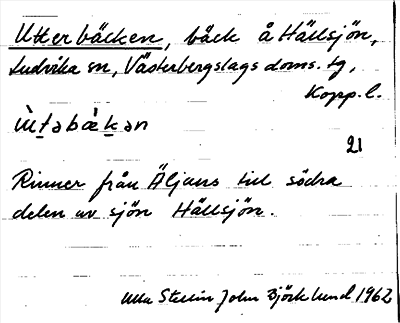 Utterbäcken, bäck å Hällsjön,
Ludvika sn, Västerbergslags doms. tg,
Kopp. l.
ẁtəbàkən
21
Rinner från Äljans till södra
delen av sjön Hällsjön.
Ulla Stellin John Björklund 1962